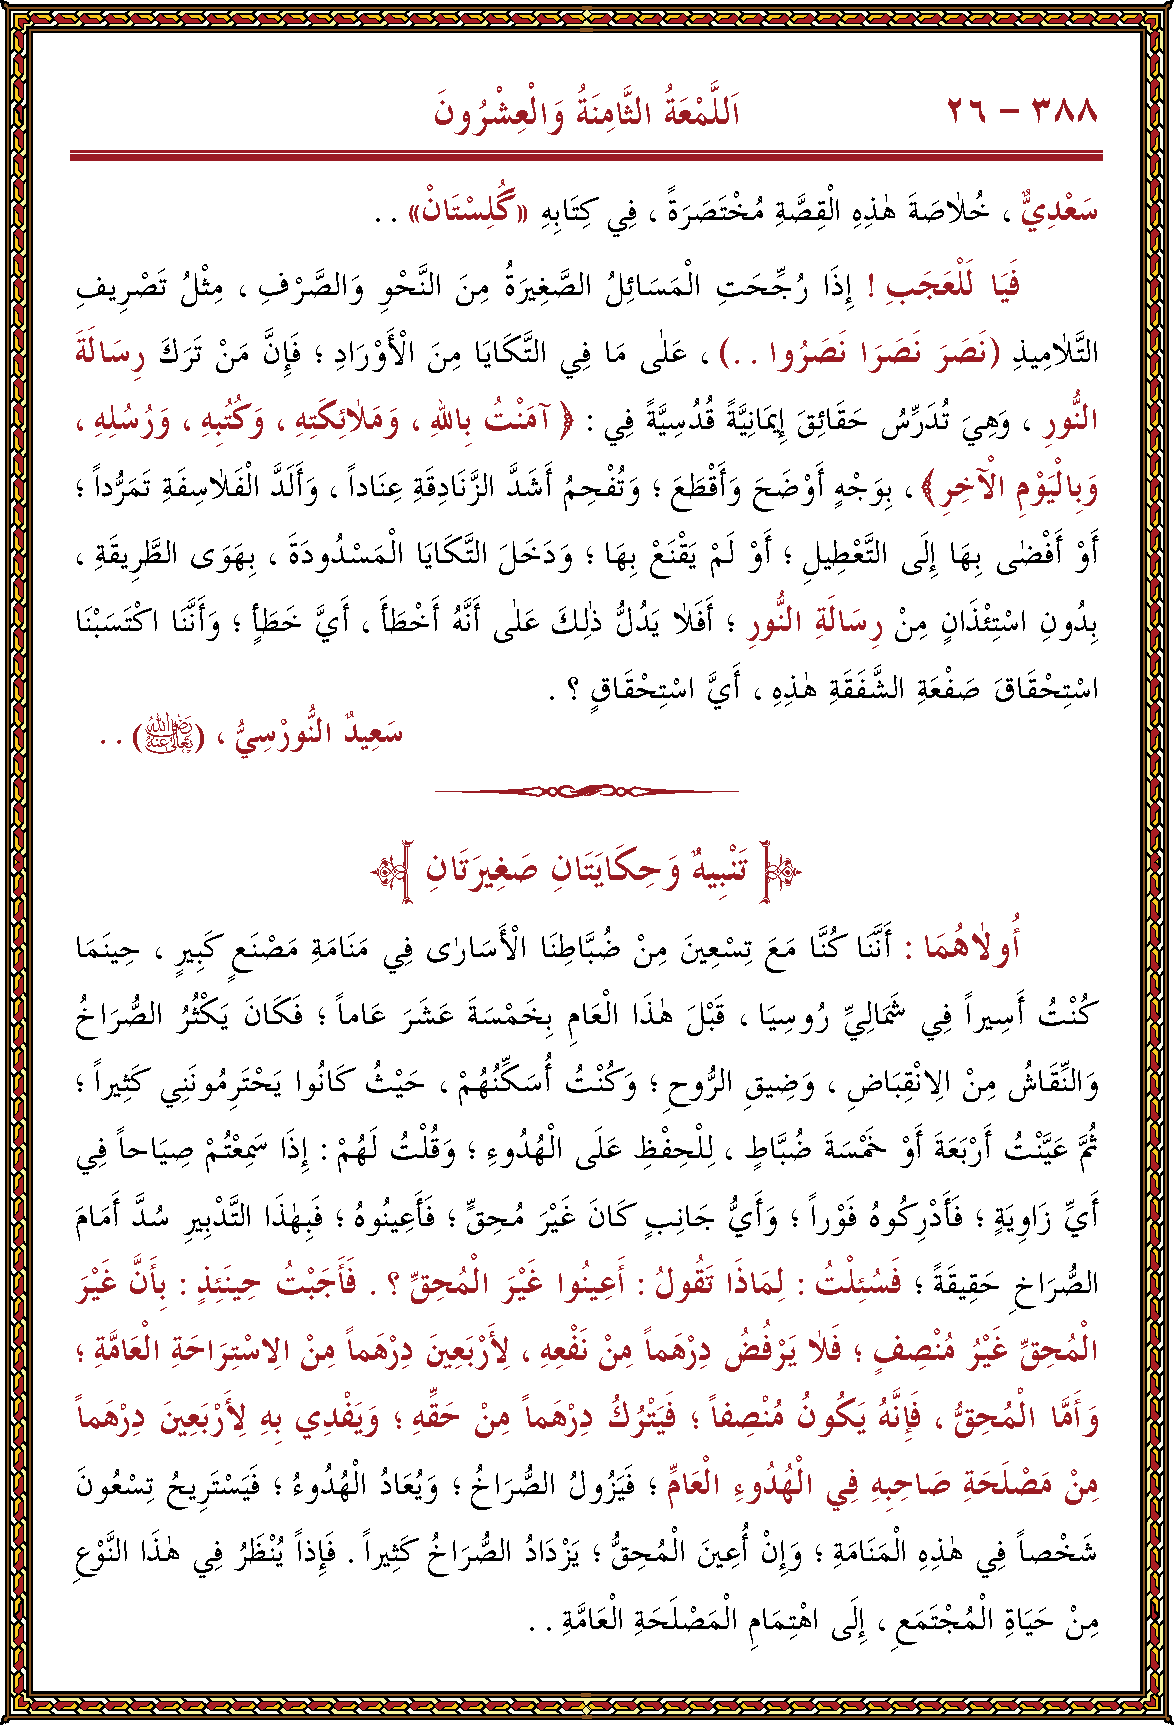 ٣٨٨ – ٢٦
اَللَّمْعَةُ الثَّامِنَةُ وَالْعِشْرُونَ
سَعْدِيٌّ ، خُلاَصَةَ هٰذِهِ الْقِصَّةِ مُخْتَصَرَةً ، فِي كِتَابِهِ «گُلِسْتَانْ» . .
فَيَا لَلْعَجَبِ ! إِذَا رُجِّحَتِ الْمَسَائِلُ الصَّغِيرَةُ مِنَ النَّحْوِ وَالصَّرْفِ ، مِثْلُ تَصْرِيفِ
التَّلاَمِيذِ (نَصَرَ نَصَرَا نَصَرُوا . .) ، عَلٰى مَا فِي التَّكَايَا مِنَ الْأَوْرَادِ ؛ فَإِنَّ مَنْ تَرَكَ رِسَالَةَ
النُّورِ ، وَهِيَ تُدَرِّسُ حَقَائِقَ إِيمَانِيَّةً قُدُسِيَّةً فِي : ﴿ آمَنْتُ بِاللهِ ، وَمَلاَئِكَتِهِ ، وَكُتُبِهِ ، وَرُسُلِهِ ،
وَبِالْيَوْمِ الْآخِرِ﴾ ، بِوَجْهٍ أَوْضَحَ وَأَقْطَعَ ؛ وَتُفْحِمُ أَشَدَّ الزَّنَادِقَةِ عِنَاداً ، وَأَلَدَّ الْفَلاَسِفَةِ تَمَرُّداً ؛
أَوْ أَفْضٰى بِهَا إِلَى التَّعْطِيلِ ؛ أَوْ لَمْ يَقْنَعْ بِهَا ؛ وَدَخَلَ التَّكَايَا الْمَسْدُودَةَ ، بِهَوَى الطَّرِيقَةِ ،
بِدُونِ اسْتِئْذَانٍ مِنْ رِسَالَةِ النُّورِ ؛ أَفَلاَ يَدُلُّ ذٰلِكَ عَلٰى أَنَّهُ أَخْطَأَ ، أَيَّ خَطَأٍ ؛ وَأَنَّنَا اكْتَسَبْنَا
اسْتِحْقَاقَ صَفْعَةِ الشَّفَقَةِ هٰذِهِ ، أَيَّ اسْتِحْقَاقٍ ؟ .
سَعِيدٌ النُّورْسِيُّ ، (رضي الله تعالى عنه) . .
تَنْبِيهٌ وَحِكَايَتَانِ صَغِيرَتَانِ
أُولاَهُمَا : أَنَّنَا كُنَّا مَعَ تِسْعِينَ مِنْ ضُبَّاطِنَا الْأَسَارٰى فِي مَنَامَةِ مَصْنَعٍ كَبِيرٍ ، حِينَمَا
كُنْتُ أَسِيراً فِي شَمَالِيِّ رُوسِيَا ، قَبْلَ هٰذَا الْعَامِ بِخَمْسَةَ عَشَرَ عَاماً ؛ فَكَانَ يَكْثُرُ الصُّرَاخُ
وَالنِّقَاشُ مِنْ الاِنْقِبَاضِ ، وَضِيقِ الرُّوحِ ؛ وَكُنْتُ أُسَكِّنُهُمْ ، حَيْثُ كَانُوا يَحْتَرِمُونَنِي كَثِيراً ؛
ثُمَّ عَيَّنْتُ أَرْبَعَةَ أَوْ خَمْسَةَ ضُبَّاطٍ ، لِلْحِفْظِ عَلَى الْهُدُوءِ ؛ وَقُلْتُ لَهُمْ : إِذَا سَمِعْتُمْ صِيَاحاً فِي
أَيِّ زَاوِيَةٍ ؛ فَأَدْرِكُوهُ فَوْراً ؛ وَأَيُّ جَانِبٍ كَانَ غَيْرَ مُحِقٍّ ؛ فَأَعِينُوهُ ؛ فَبِهٰذَا التَّدْبِيرِ سُدَّ أَمَامَ
الصُّرَاخِ حَقِيقَةً ؛ فَسُئِلْتُ : لِمَاذَا تَقُولُ : أَعِينُوا غَيْرَ الْمُحِقِّ ؟ . فَأَجَبْتُ حِينَئِذٍ : بِأَنَّ غَيْرَ
الْمُحِقِّ غَيْرُ مُنْصِفٍ ؛ فَلاَ يَرْفُضُ دِرْهَماً مِنْ نَفْعِهِ ، لِأَرْبَعِينَ دِرْهَماً مِنْ الاِسْتِرَاحَةِ الْعَامَّةِ ؛
وَأَمَّا الْمُحِقُّ ، فَإِنَّهُ يَكُونُ مُنْصِفاً ؛ فَيَتْرُكُ دِرْهَماً مِنْ حَقِّهِ ؛ وَيَفْدِي بِهِ لِأَرْبَعِينَ دِرْهَماً
مِنْ مَصْلَحَةِ صَاحِبِهِ فِي الْهُدُوءِ الْعَامِّ ؛ فَيَزُولُ الصُّرَاخُ ؛ وَيُعَادُ الْهُدُوءُ ؛ فَيَسْتَرِيحُ تِسْعُونَ
شَخْصاً فِي هٰذِهِ الْمَنَامَةِ ؛ وَإِنْ أُعِينَ الْمُحِقُّ ؛ يَزْدَادُ الصُّرَاخُ كَثِيراً . فَإِذاً يُنْظَرُ فِي هٰذَا النَّوْعِ
مِنْ حَيَاةِ الْمُجْتَمَعِ ، إِلَى اهْتِمَامِ الْمَصْلَحَةِ الْعَامَّةِ . .